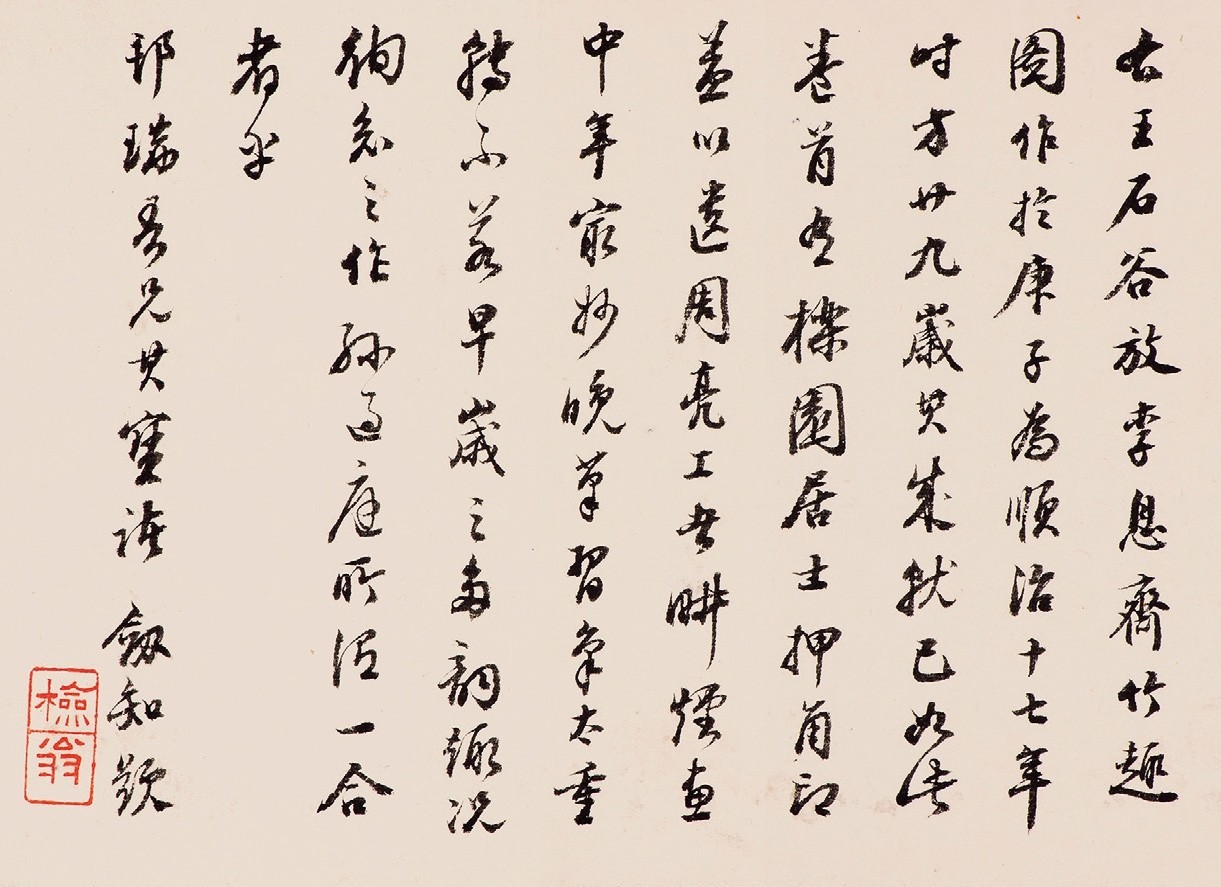 右王石谷放李息齋竹趣
圖作於庚子為順治十七年
時方廿九歲其成就已如此
卷首有櫟園居士押角印
蓋以遺周亮工者耕煙畫
中年最妙晚年習氣太重
轉不若早歲之多韻趣况
徇知之作孫過庭所謂一合
者乎
邦瑞吾兄其寶諸 劔知題
檢翁